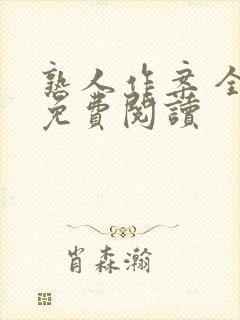 熟人作案全
免費閱讀
肖森瀚